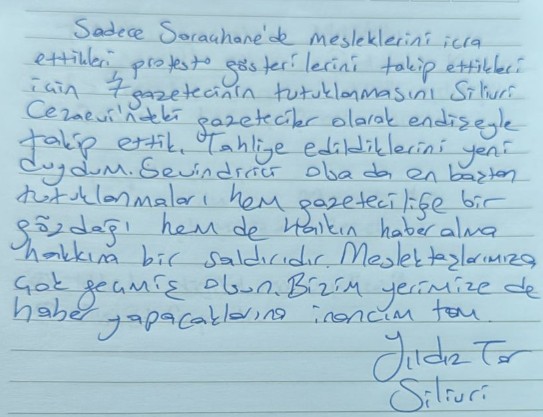 Sadece Saraçhane'de mesleklerini icra
ettikleri protesto gösterilerini takip ettikleri
için 7 gazetecinin tutuklanmasını Silivri
Cezaevi'ndeki gazeteciler olarak endişeyle
takip ettik. Tahliye edildiklerini yeni
duydum. Sevindirici olsa da en baştan
tutuklanmaları hem gazeteciliğe bir
gözdağı hem de Halkın haber alma
hakkına bir saldırıdır. Meslektaşlarımıza
çok geçmiş olsun. Bizim yerimize de
haber yapacaklarına inancım tam.
Yıldız Tar
Silivri